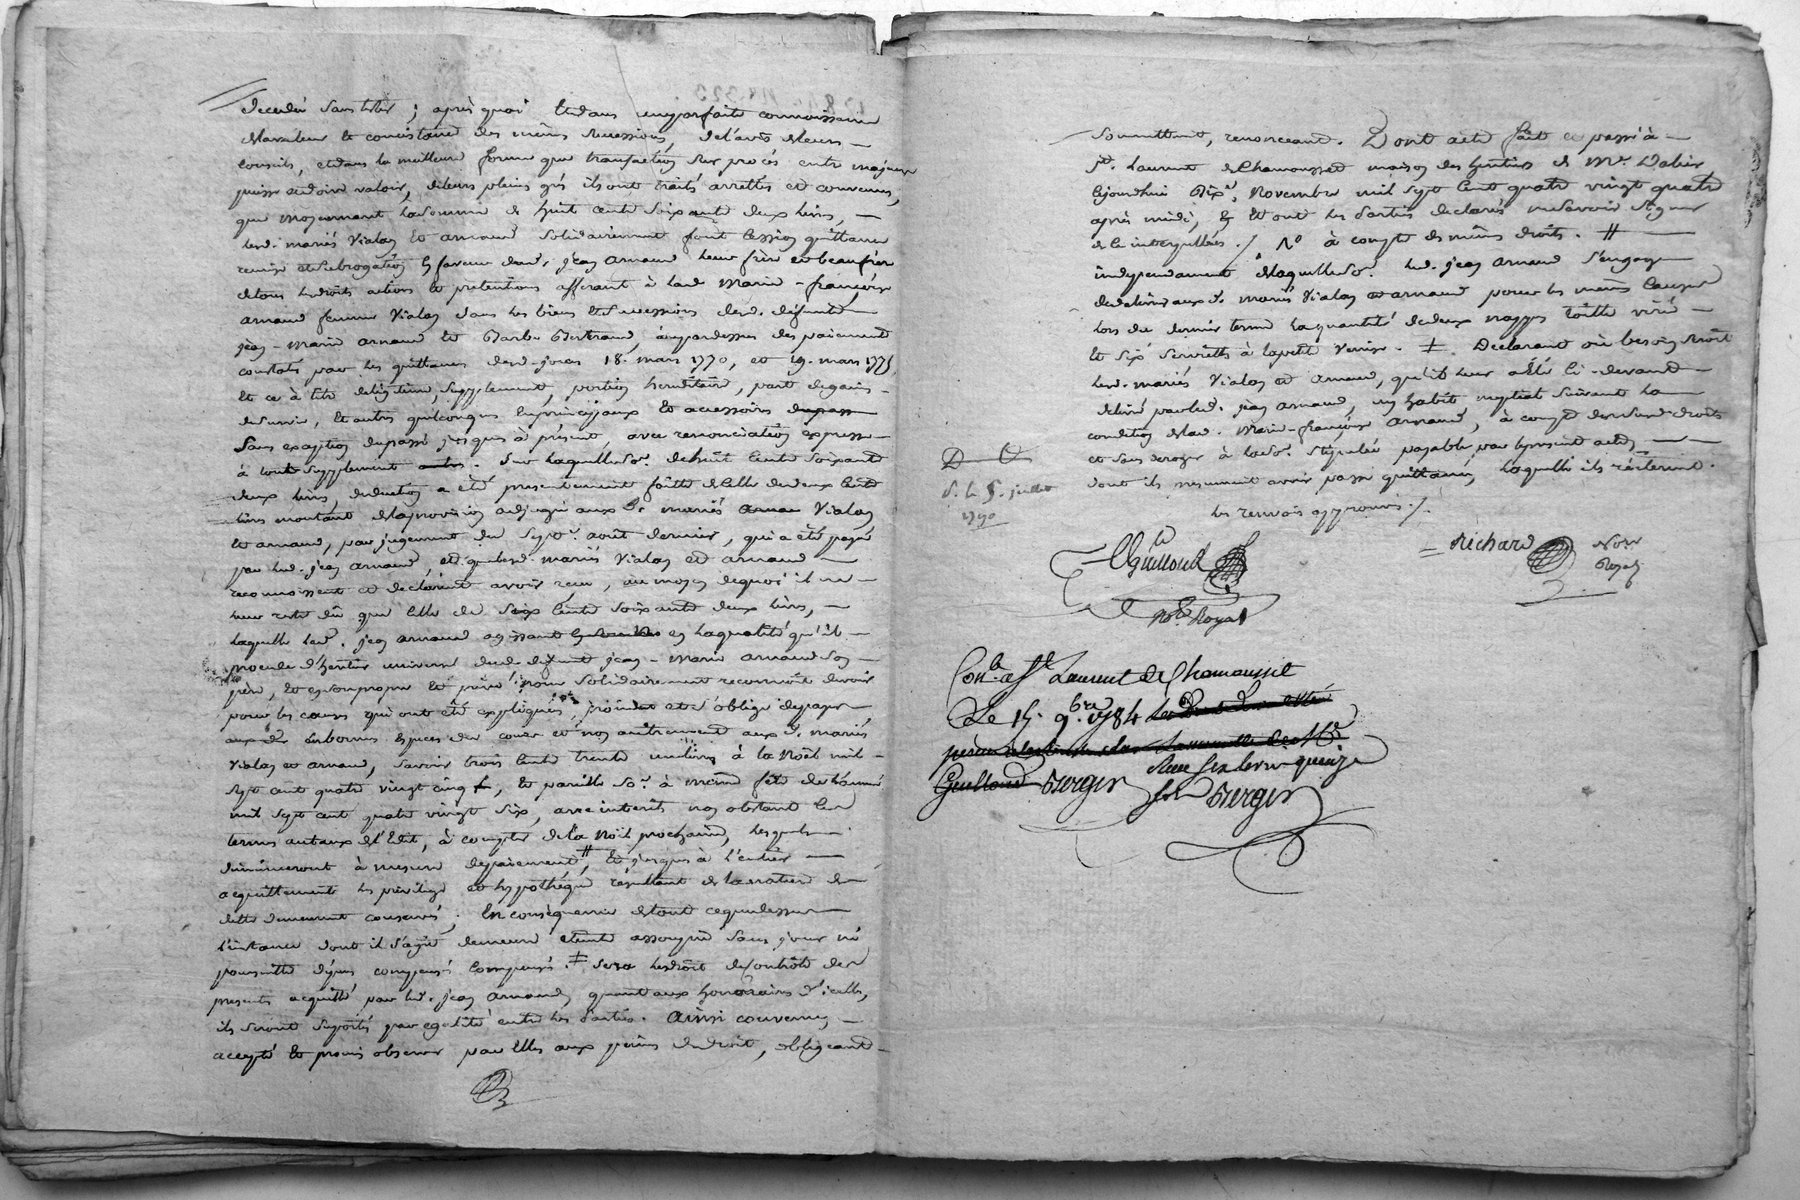 decedée sans tester ; après quoi et dans une parfaite connoissance
de la valeur et consistance des mêmes successions, de l'avis de leurs
conseils, et dans la meilleure forme que transaction sur procès entre majeurs
puisse et doive valoir, de leurs pleins grés ils ont traités arrettés et convenus,
que moyennant la somme de huit cents soixante deux livres,
lesd. mariés Vialon et arnaud solidairement font cession quittance
remise et subrogation en faveur dud. jean arnaud leur frère et beaufrère
de tous les droits actions et pretentions afferant à lad. Marie-françoise
arnaud femme Vialon dans les biens et successions desd. défunts
jean-marie arnaud et Barbe Bertrand, au pardessus des paiement
constatés par les quittances desd. jours 18. mars 1770, et 19. mars 1775,
et ce à titre de légitime, supplement, portion hereditaire, part de gains
de survie, et autres quelconques en principaux et accessoires
sans exception du passé jusques à présent, avec renonciation expresse
à tout supplement. Sur laquelle so.e de huit cents soixante
deux livres, deduction a été presentement faitte de celle de deux cents
livres montant de la provision adjugée aux d. mariés Vialon
et arnaud, par jugement du sept.e aoust dernier, qui a été payée
par led. jean arnaud, et que lesd. mariés Vialon et arnaud
reconnoissent et declarent avoir reçu, au moyen de quoi il ne
leur reste dû que celle de six cents soixante deux livres,
laquelle led. jean arnaud agissant en la qualité qu'il
procede d'heritier universel dud. defunt jean-marie arnaud son
père, et en son propre et privé nom solidairement reconnoit devoir
pour les causes qui ont été expliquées, promet et s'oblige de payer
en bonnes especes de cours et non autrement aux d. mariés
Vialon et arnaud, savoir trois cents trente une livres à la Noël mil
sept cent quatre vingt cinq, et pareille so.e à même fête de l'année
mil sept cent quatre vingt six, avec interets nonobstant les
termes au taux de l'Edit, à compter de la Noël prochaine, lesquels
diminueront à mesure de paiement, et jusques à l'entier
acquittement les privilege et hypothéque résultant de la nature de
dette demeurent conservés. En conséquence de tout ce que dessus
l'instance dont il s'agit demeure eteinte assoupie sans jour ni
poursuitte dépens compensés. Sera le droit de controle des
presentes acquitté par led. jean arnaud, quant aux honoraires d'icelles,
ils seront suportés par egalité entre les parties. Ainsi convenu,
accepté et promis observer par elles aux peines de droit, obligeant
soumettant, renonceant. Dont acte fait et passé à
S.t Laurent de Chamousset maison des heritiers de M.e Dalier
cejourdhui dix.e Novembre mil sept cent quatre vingt quatre
après midi, et ont les parties declarés ne savoir signer
de ce interpellées ./ N.o à compte des mêmes droits. #
independament de laquelle so.e led. jean arnaud s'engage
de delivrer aux d. mariés Vialon et arnaud pour les mêmes causes
lors du dernier terme la quantité de deux nappes toille
et six serviettes à la petite Venise. ‡. Declarant où besoin seroit
lesd. mariés Vialon et arnaud, qu'il leur a été ci-devant
delivré par led. jean arnaud, un habit nuptial suivant la
condition de lad. Marie-françoise arnaud, à compte de susd. droits
et sans deroger à la so.e stipulée payable par le present acte,
dont ils presument avoir passé quittance, laquelle ils réiterent.
les renvois approuvés ./.
D
d. le 5. juillet
1790
Guilloud
No.re Royal
Richard
No.re
Royal
Con.lé a S.t Laurent de Chamousset
Le 15. 9.bre 1784
Guilloud Berger
Reçu six livres quinze
sols Berger